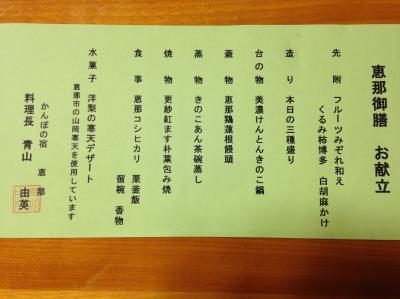 恵那御膳　お献立
先　附　フルーツみぞれ和え
くるみ柿博多　白胡麻かけ
造　り　本日の三種盛り
台の物　美濃けんとんきのこ鍋
蓋　物　恵那鶏蓮根饅頭
蒸　物　きのこあん茶碗蒸し
焼　物　更紗紅ます朴葉包み焼
食　事　恵那コシヒカリ　栗釜飯
留椀　香物
水菓子　洋梨の寒天デザート
恵那市の山岡寒天を使用しています
かんぽの宿　恵　那
料理長　青山　由英